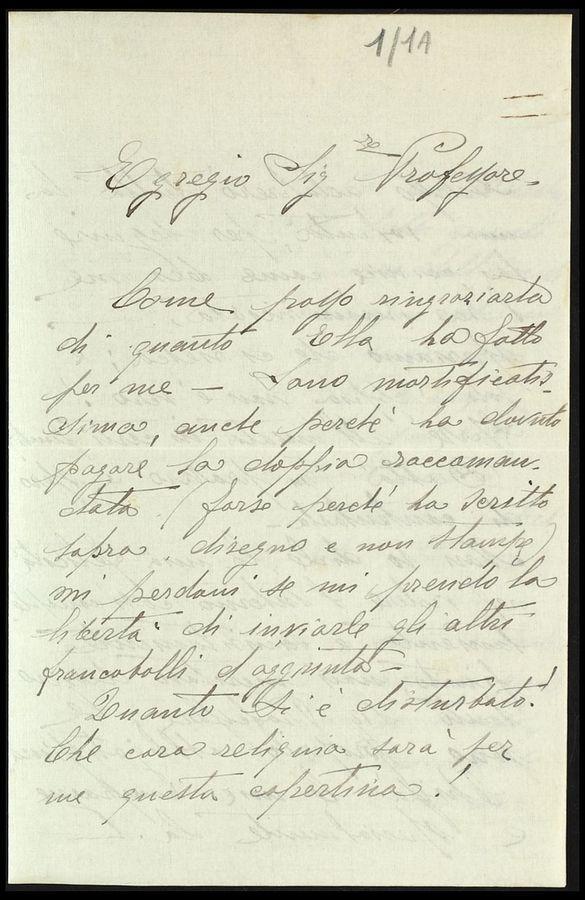 1/1A
Egregio Sig.re Professore.
Come posso ringraziarla
di quanto Ella ha fatto
per me — Sono mortificatis-
sima, anche perché ha dovuto
pagare la doppia raccoman-
data (forse perché ha scritto
sopra disegno e non stampe)
mi perdoni se mi prendo la
libertà di inviarle gli altri
francobolli d'aggiunta —
Quanto si è disturbato!
Che cara reliquia sarà per
me questa copertina!